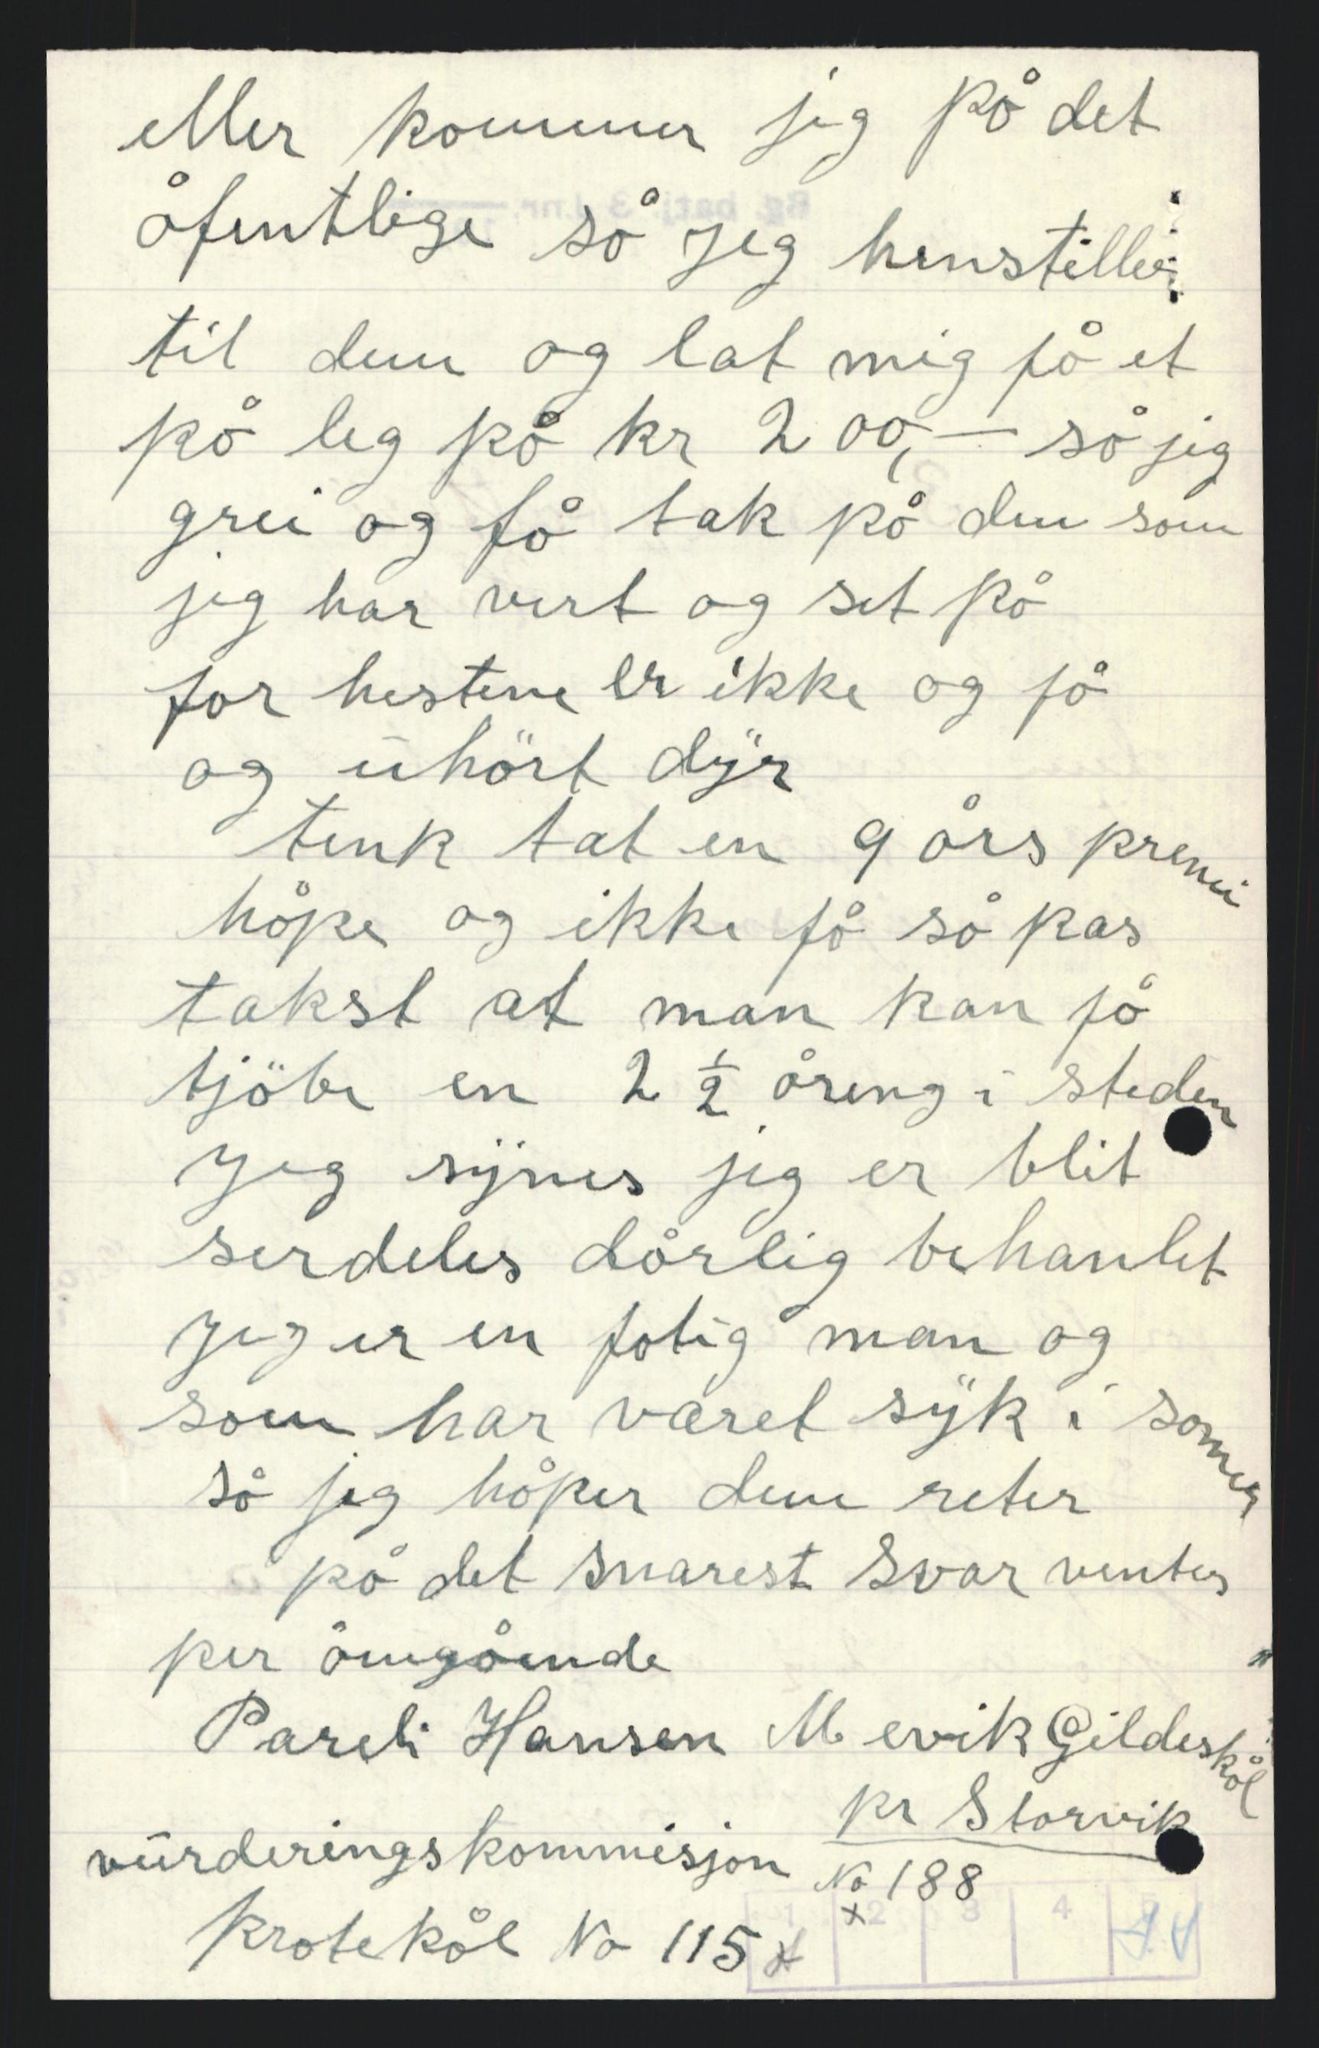 eller kommer jeg på det
åfentlige så jeg henstiller
til dem og lat mig få et
på leg på kr 200,— så jeg
grei og få tak på den som
jeg har vert og set på
for hestene er ikke og få
og uhört dyr
tenk tat en 9 års premi
håpe og ikke få så pas
takst at man kan få
tjöbe en 2 ½ åreng i steden
jeg synes jeg er blit
serdeles dårlig behanlet
jeg er en fatig man og
som har været syk i somer
så jeg håper dem reter
på det snarest Svar ventes
per åmgående
Pareli Hansen Mevik Gildeskål
pr Storvik
vurderingskommisjon No 188
Protekål No 115
1 2 3 4